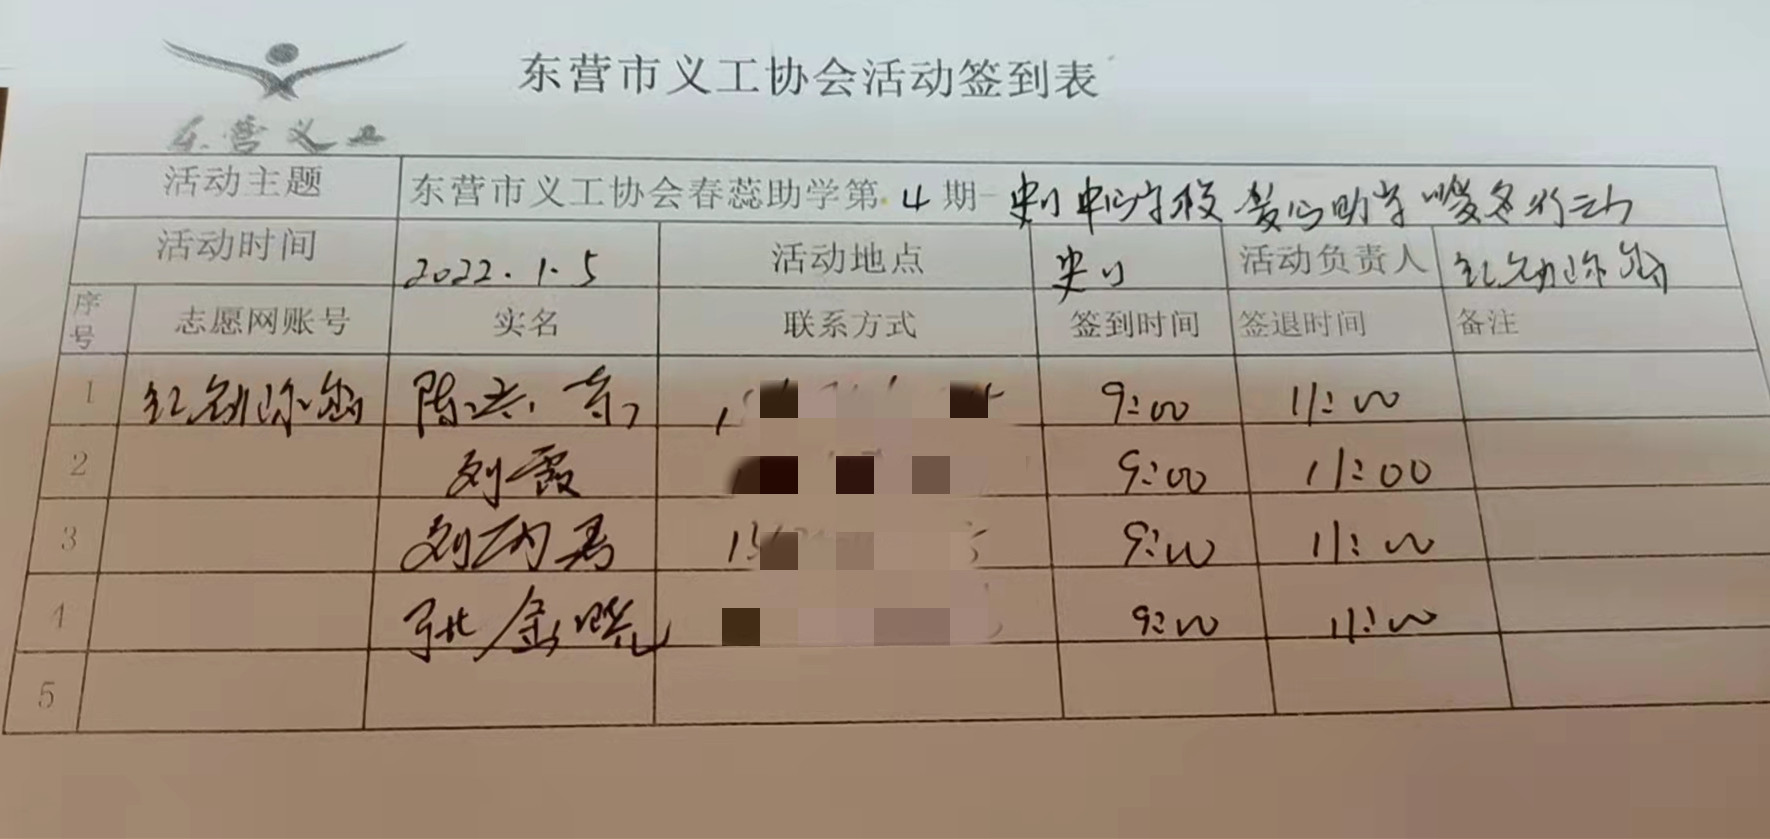 东营市义工协会活动签到表
东营义工
活动主题 东营市义工协会春蕊助学第4期-史口中心学校爱心助学暖冬行动
活动时间 2022.1.5 活动地点 史口 活动负责人
序号 志愿网账号 实名 联系方式 签到时间 签退时间 备注
1 陈 9:00 11:00
2 刘霞 9:00 11:00
3 刘 9:00 11:00
4 张金晓 9:00 11:00
5